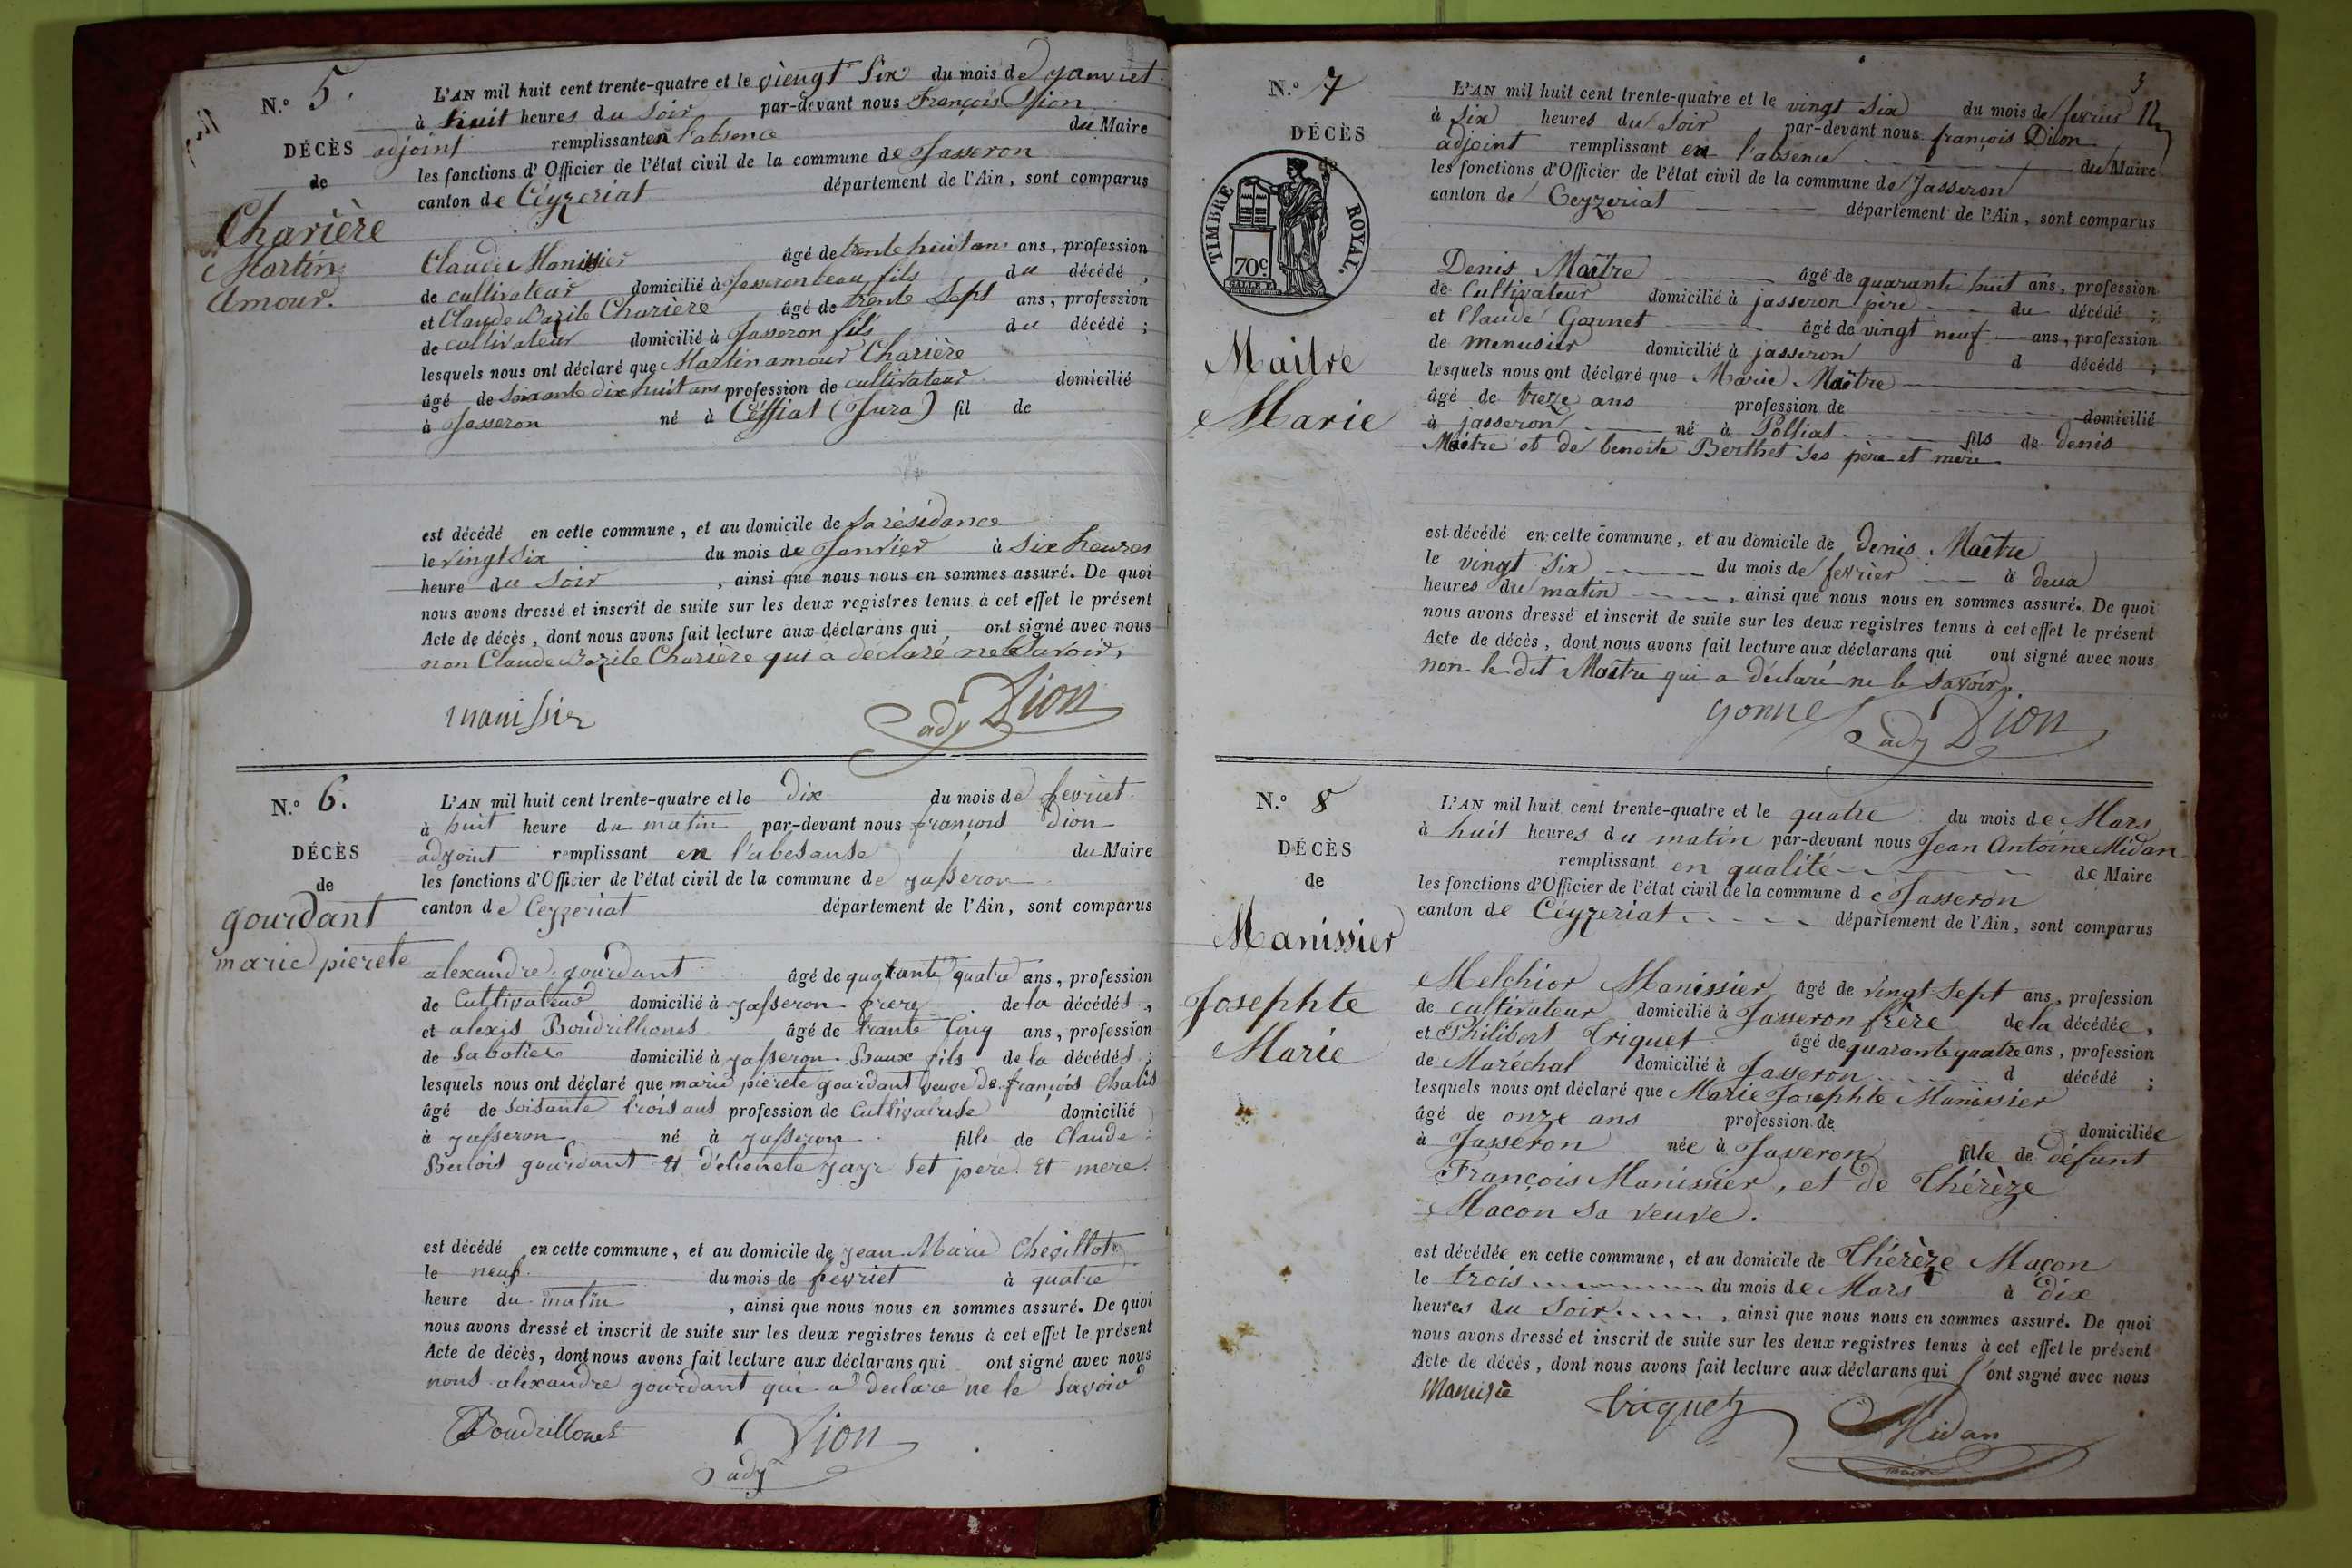 N.° 5.
DÉCÈS
de
Charière
Martin
Amour.
L'AN mil huit cent trente-quatre et le viengt Six du mois de janviet
à huit heures du Soir par-devant nous François Dion
adjoint remplissant en l'absence du Maire
les fonctions d'Officier de l'état civil de la commune de Jasseron
canton de Céyzeriat département de l'Ain, sont comparus
Claude Manissier âgé de trente huit ans ans, profession
de cultivateur domicilié à Jasseron beau fils du décédé,
et Claude Bazile Charière âgé de trente Sept ans, profession
de cultivateur domicilié à Jasseron fils du décédé;
lesquels nous ont déclaré que Martin amour Charière
âgé de Soixante dix huit ans profession de cultivateur domicilié
à Jasseron né à Céffiat (Jura) fil de
est décédé en cette commune, et au domicile de sa résidance
le vingt Six du mois de Janvier à Six heures
heure du Soir, ainsi que nous nous en sommes assuré. De quoi
nous avons dressé et inscrit de suite sur les deux registres tenus à cet effet le présent
Acte de décès, dont nous avons fait lecture aux déclarans qui ont signé avec nous
non Claude Bazile Charière qui a déclaré ne le Savoir,
manissier
Dion
adj
N.° 6.
DÉCÈS
de
gourdant
marie pierete
L'AN mil huit cent trente-quatre et le dix du mois de fevriet
à huit heure du matin par-devant nous françois dion
adjoint remplissant en l'abesanse du Maire
les fonctions d'Officier de l'état civil de la commune de jasseron
canton de Ceyzeriat département de l'Ain, sont comparus
alexandre gourdant âgé de quatrante quatre ans, profession
de Cultivateur domicilié à jasseron frere de la décédés,
et alexis Boudrillones âgé de trante Cinq ans, profession
de Sabotier domicilié à jasseron Baux fils de la décédés;
lesquels nous ont déclaré que marie pierete gourdant veuve de françois Chatis
âgé de Soisante trois ans profession de Cultivatrise domicilié
à jasseron né à jasseron fille de Claude
Benois gourdant et d'etienete jaye Set pere et mere.
est décédé en cette commune, et au domicile de jean Marie Chevillot
le neuf du mois de fevriet à quatre
heure du matin, ainsi que nous nous en sommes assuré. De quoi
nous avons dressé et inscrit de suite sur les deux registres tenus à cet effet le présent
Acte de décès, dont nous avons fait lecture aux déclarans qui ont signé avec nous
nons alexandre gourdant qui a declare ne le Savoir
Boudrillones
Dion
adj
3
N.° 7
DÉCÈS
de
TIMBRE ROYAL.
70c.
Maitre
Marie
L'AN mil huit cent trente-quatre et le vingt six du mois de fevrier
à six heures du soir par-devant nous françois Dion
adjoint remplissant en l'absence du Maire
les fonctions d'Officier de l'état civil de la commune de Jasseron
canton de Ceyzeriat département de l'Ain, sont comparus
Denis Maître âgé de quarante huit ans, profession
de Cultivateur domicilié à jasseron père du décédé;
et Claude Gonnet âgé de vingt neuf ans, profession
de menusier domicilié à jasseron d décédé;
lesquels nous ont déclaré que Marie Maître
âgé de treze ans profession de domicilié
à jasseron né à Polliat fils de denis
Maître et de benoite Berthet ses père et mère
est décédé en cette commune, et au domicile de denis Maître
le vingt six du mois de fevrier à deux
heures du matin, ainsi que nous nous en sommes assuré. De quoi
nous avons dressé et inscrit de suite sur les deux registres tenus à cet effet le présent
Acte de décès, dont nous avons fait lecture aux déclarans qui ont signé avec nous
non le dit Maître qui a déclaré ne le savoir.
gonnet
Dion
adj
N.° 8
DÉCÈS
de
Manissier
Josephte
Marie
L'AN mil huit cent trente-quatre et le quatre du mois de Mars
à huit heures du matin par-devant nous Jean Antoine Midan
remplissant en qualité de Maire
les fonctions d'Officier de l'état civil de la commune de Jasseron
canton de Céyzeriat département de l'Ain, sont comparus
Melchior Manissier âgé de vingt Sept ans, profession
de cultivateur domicilié à Jasseron frère de la décédée,
et Philibert Triquet âgé de quarante quatre ans, profession
de Maréchal domicilié à Jasseron d décédé;
lesquels nous ont déclaré que Marie Josephte Manissier
âgé de onze ans profession de domiciliée
à Jasseron née à Jasseron fille de défunt
François Manissier, et de Thérèze
Macon sa veuve.
est décédée en cette commune, et au domicile de Thérèze Macon
le trois du mois de Mars à dix
heures du Soir, ainsi que nous nous en sommes assuré. De quoi
nous avons dressé et inscrit de suite sur les deux registres tenus à cet effet le présent
Acte de décès, dont nous avons fait lecture aux déclarans qui l'ont signé avec nous
Manisié
triquet
Midan
maire